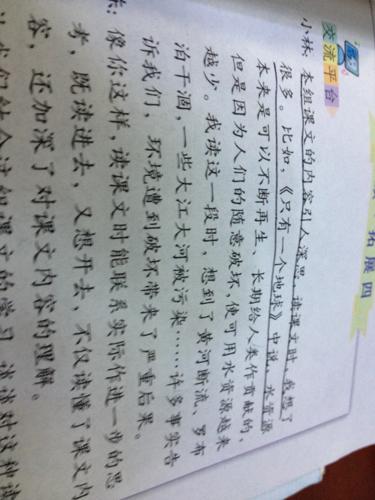 拓展四
交流平台
小林：本组课文的内容引人深思。读课文时，我想了
很多。比如，《只有一个地球》中说，水资源
本来是可以不断再生、长期给人类作贡献的，
但是因为人们的随意破坏，使可用水资源越来
越少。我读这一段时，想到了黄河断流、罗布
泊干涸，一些大江大河被污染……许多事实告
诉我们，环境遭到破坏带来了严重后果。
东：像你这样，读课文时能联系实际作进一步的思
考，既读进去，又想开去，不仅读懂了课文内
容，还加深了对课文内容的理解。
我们结合这组课文的学习，谈谈对这种读